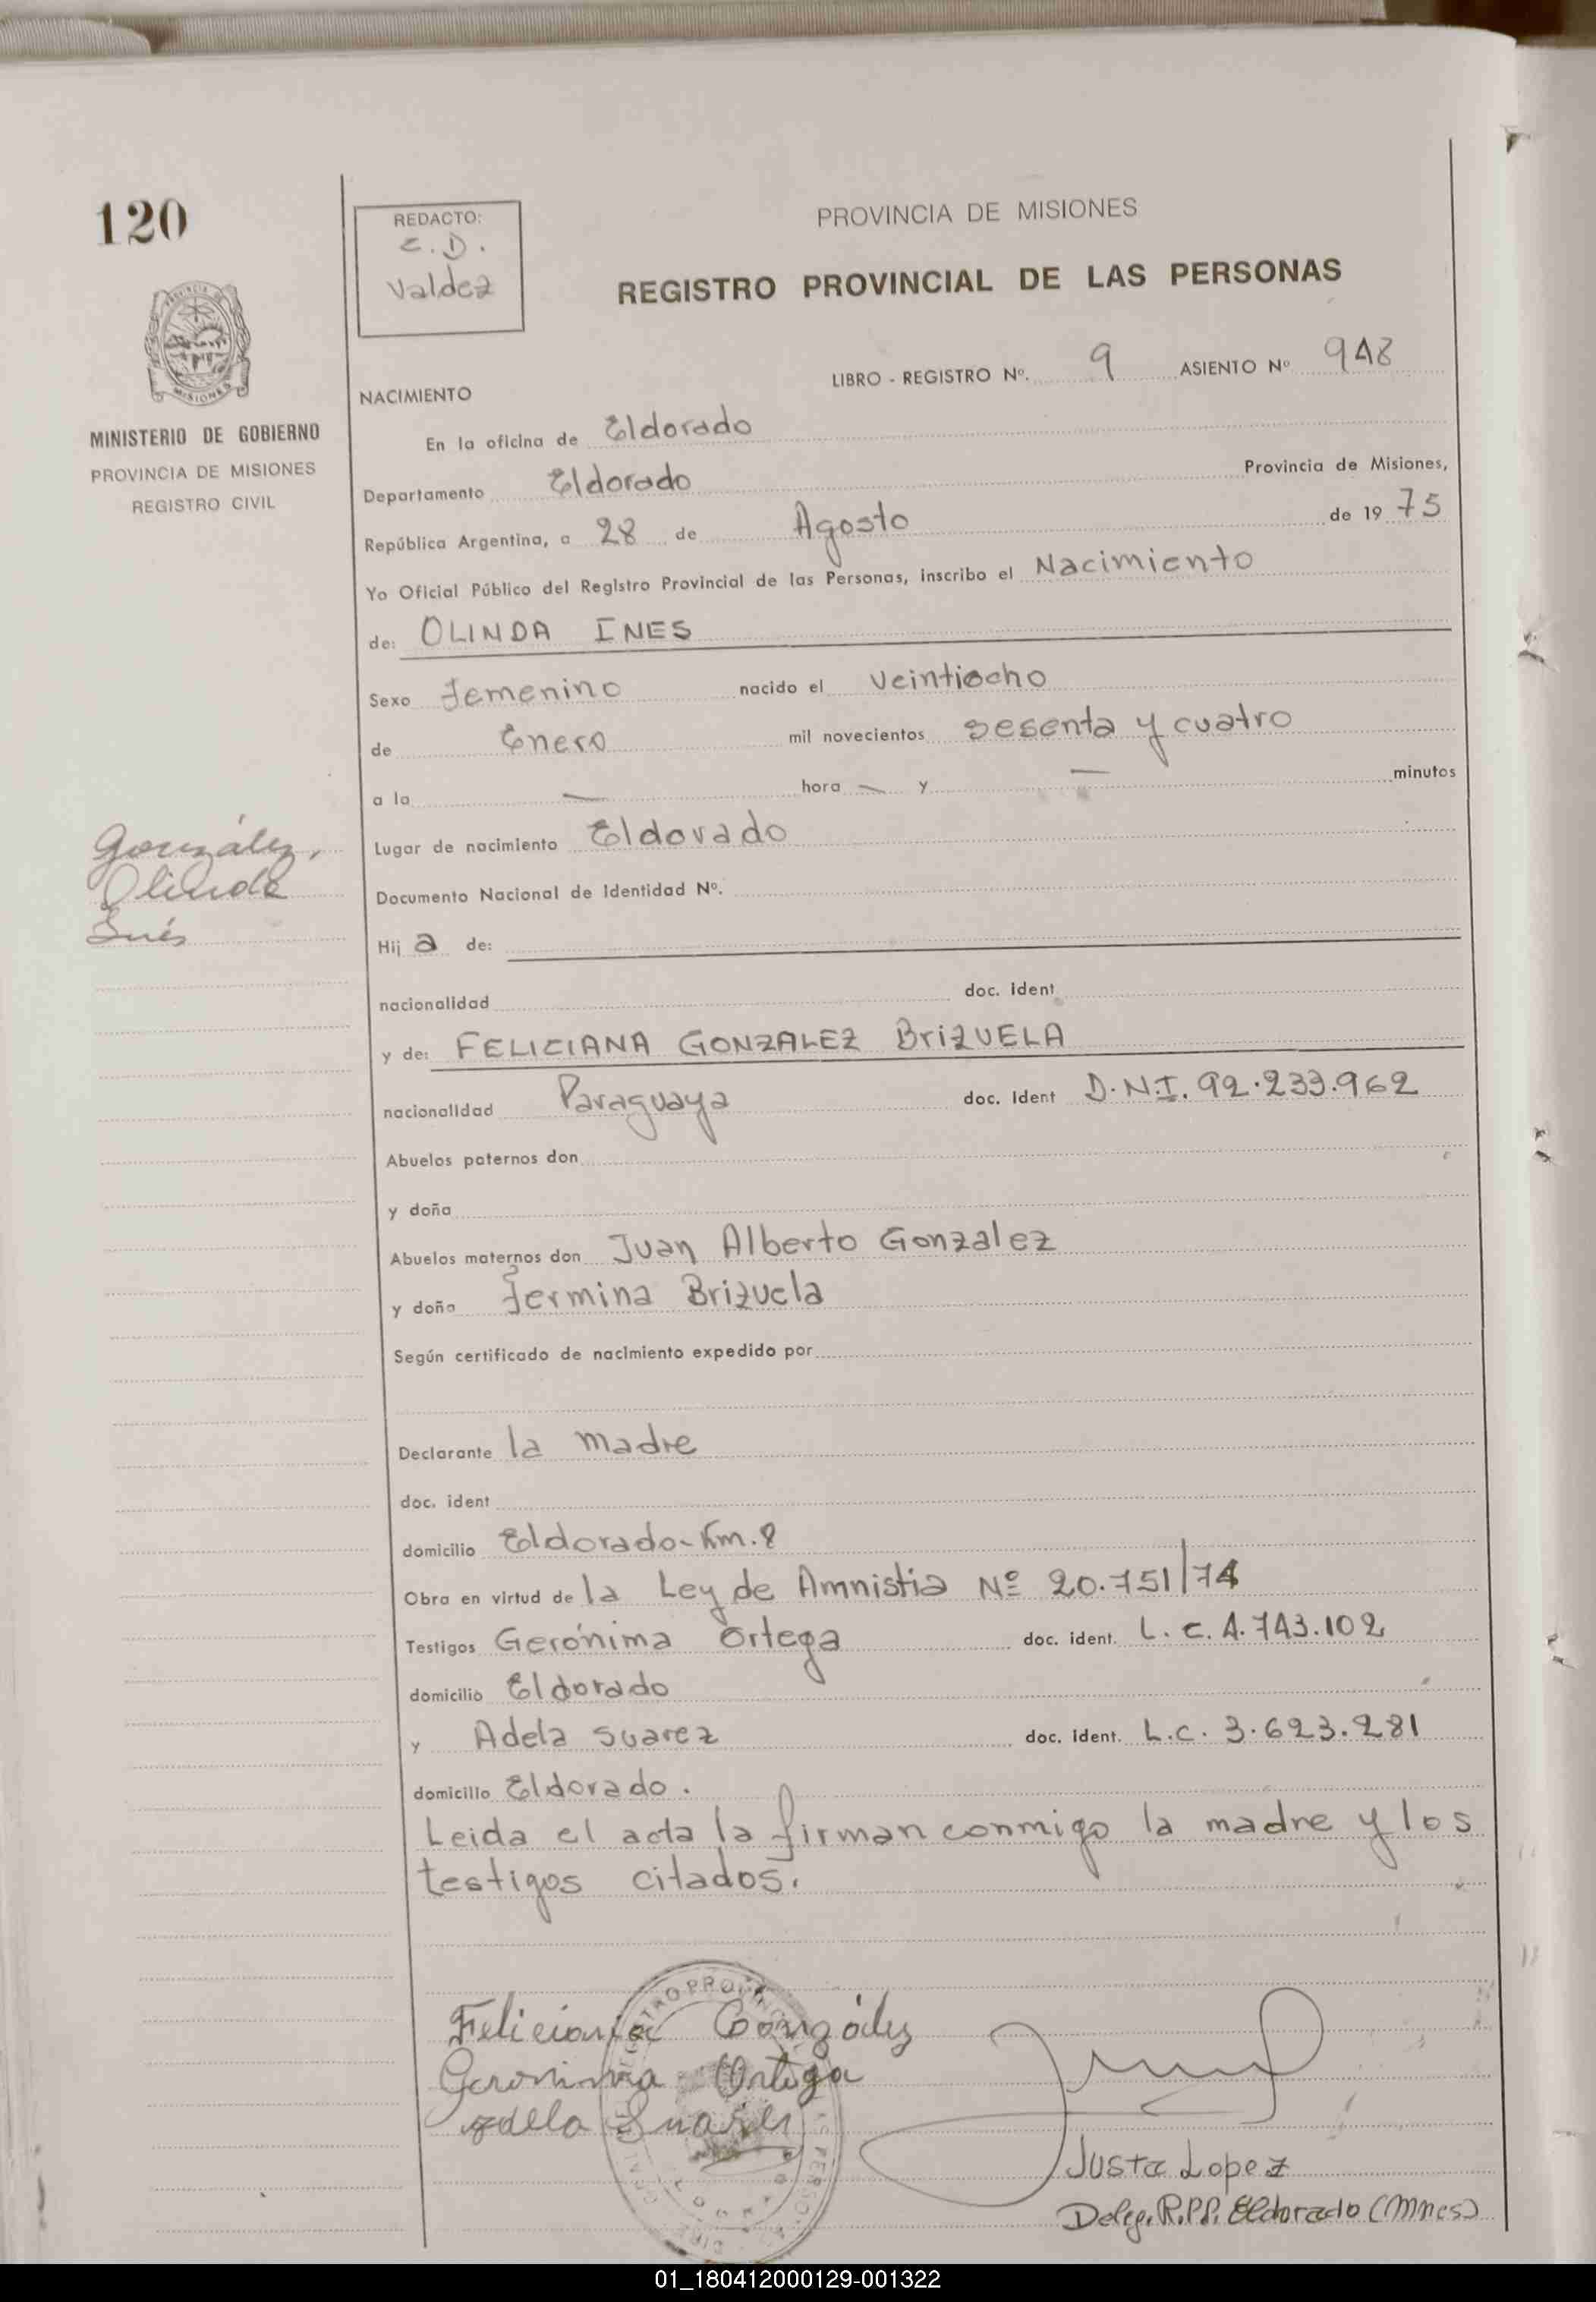 120
REDACTO:
E. D.
Valdez
PROVINCIA DE MISIONES
REGISTRO PROVINCIAL DE LAS PERSONAS
MINISTERIO DE GOBIERNO
PROVINCIA DE MISIONES
REGISTRO CIVIL
LIBRO - REGISTRO Nº. 9 ASIENTO Nº 948
NACIMIENTO
En la oficina de Eldorado
Departamento Eldorado Provincia de Misiones,
República Argentina, a 28 de Agosto de 19 75
Yo Oficial Público del Registro Provincial de las Personas, inscribo el Nacimiento
de: OLINDA INES
Sexo Femenino nacido el veintiocho
de Enero mil novecientos sesenta y cuatro
a la — hora — y — minutos
González,
Olinda
Inés
Lugar de nacimiento Eldorado
Documento Nacional de Identidad Nº.
Hij a de:
nacionalidad doc. ident
y de: FELICIANA GONZALEZ BRIZUELA
nacionalidad Paraguaya doc. ident D.N.I. 92.233.962
Abuelos paternos don
y doña
Abuelos maternos don Juan Alberto Gonzalez
y doña Fermina Brizuela
Según certificado de nacimiento expedido por
Declarante la madre
doc. ident
domicilio Eldorado-Km.8
Obra en virtud de la Ley de Amnistia Nº 20.751/74
Testigos Gerónima Ortega doc. ident. L.C. 4.743.102
domicilio Eldorado
y Adela Suarez doc. ident. L.C. 3.623.281
domicilio Eldorado.
Leida el acta la firman conmigo la madre y los
testigos citados.
Feliciana González
Geronima Ortega
adela Suarez
Justa Lopez
Deleg. R.P.P. Eldorado (Mnes)
01_180412000129-001322